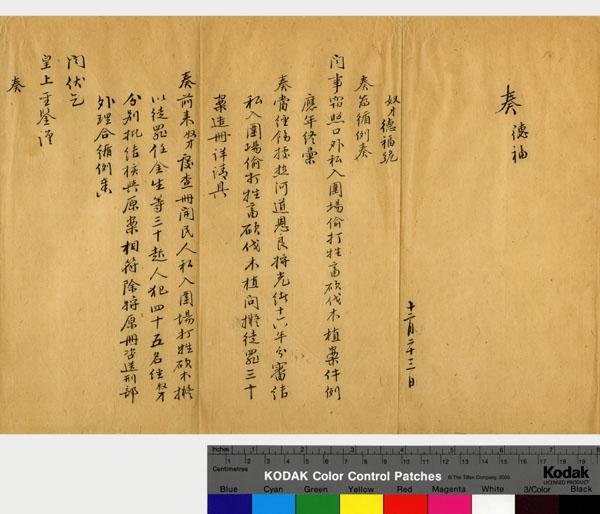 奏
德福
十二月二十三日
奴才德福跪
奏為循例奏
聞事窃照口外私入圍場偷打牲畜砍伐木植案件例
應年終彙
奏當經飭據熱河道恩良將光緒十六年分審結
私入圍場偷打牲畜砍伐木植問擬徒罪三十
案造冊詳請具
奏前來奴才覆查冊開民人私入圍場打牲砍木擬
以徒罪任金生等三十起人犯四十五名經奴才
分別批結核與原案相符除將原冊咨送刑部
外理合循例具
聞伏乞
皇上聖鑒謹
奏
Inches
Centimetres
KODAK Color Control Patches
© The Tiffen Company, 2000
Kodak
LICENSED PRODUCT
Blue Cyan Green Yellow Red Magenta White 3/Color Black